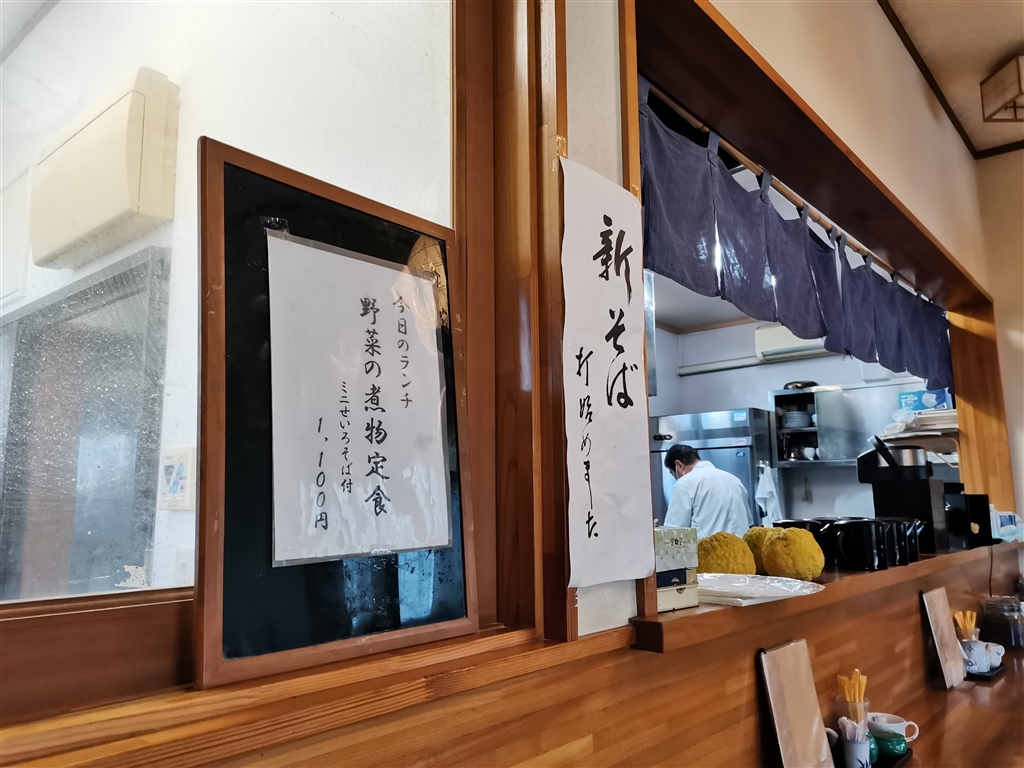 今日のランチ
野菜の煮物定食
ミニせいろそば付
1,100円
新そば
打始めました